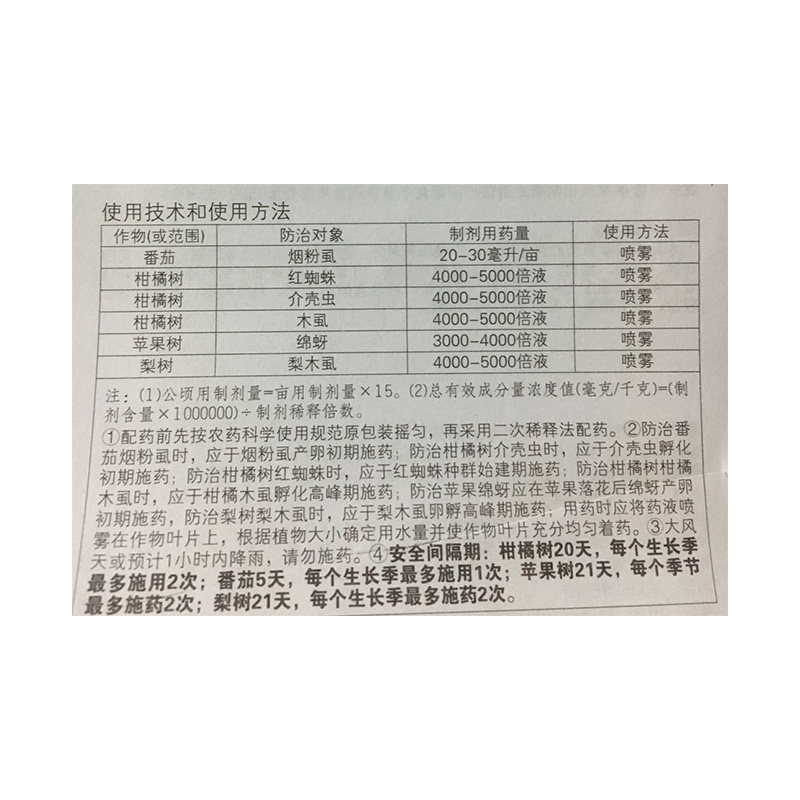 使用技术和使用方法
作物(或范围) 防治对象 制剂用药量 使用方法
番茄 烟粉虱 20-30毫升/亩 喷雾
柑橘树 红蜘蛛 4000-5000倍液 喷雾
柑橘树 介壳虫 4000-5000倍液 喷雾
柑橘树 木虱 4000-5000倍液 喷雾
苹果树 绵蚜 3000-4000倍液 喷雾
梨树 梨木虱 4000-5000倍液 喷雾
注:(1)公顷用制剂量=亩用制剂量×15。(2)总有效成分量浓度值(毫克/千克)=(制
剂含量×1000000)÷制剂稀释倍数。
①配药前先按农药科学使用规范原包装摇匀，再采用二次稀释法配药。②防治番
茄烟粉虱时，应于烟粉虱产卵初期施药；防治柑橘树介壳虫时，应于介壳虫孵化
初期施药；防治柑橘树红蜘蛛时，应于红蜘蛛种群始建期施药；防治柑橘树柑橘
木虱时，应于柑橘木虱孵化高峰期施药；防治苹果绵蚜应在苹果落花后绵蚜产卵
初期施药，防治梨树梨木虱时，应于梨木虱卵孵高峰期施药；用药时应将药液喷
雾在作物叶片上，根据植物大小确定用水量并使作物叶片充分均匀着药。③大风
天或预计1小时内降雨，请勿施药。④安全间隔期：柑橘树20天，每个生长季
最多施用2次；番茄5天，每个生长季最多施用1次；苹果树21天，每个季节
最多施药2次；梨树21天，每个生长季最多施药2次。